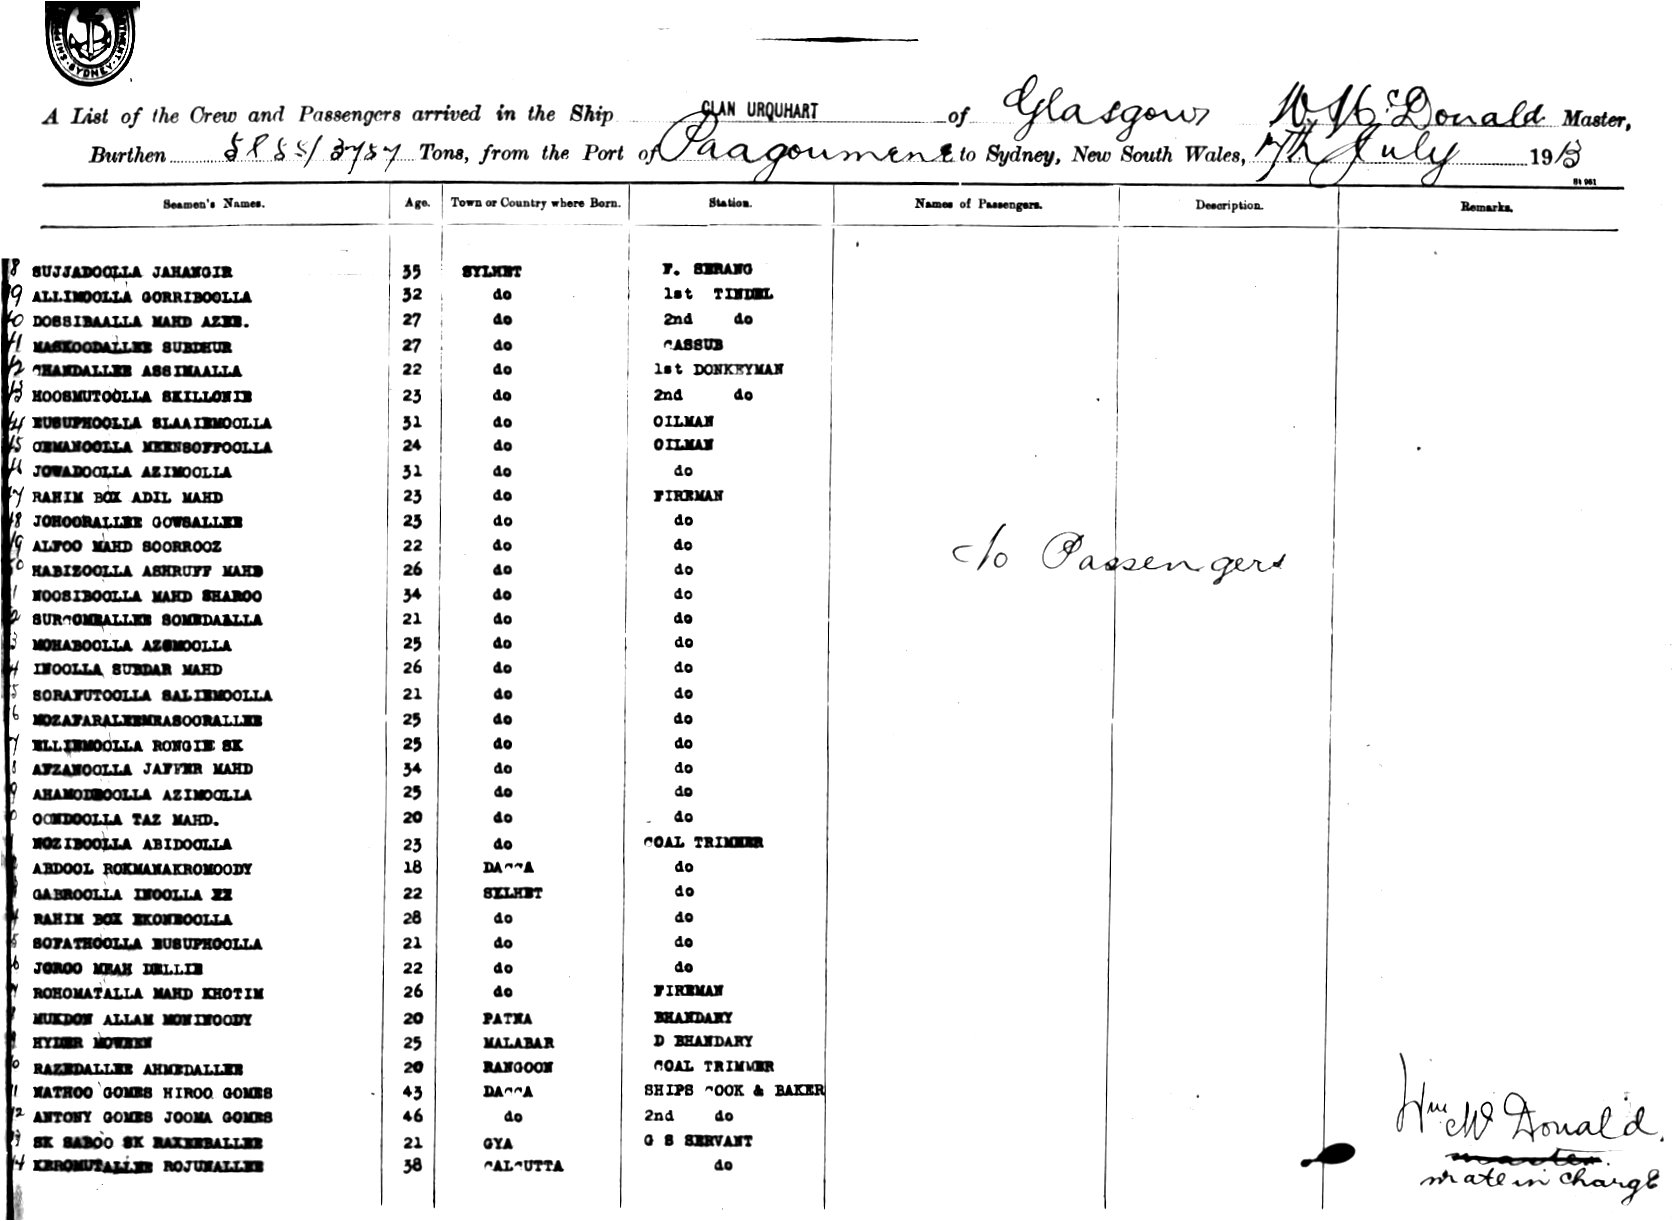 SYDNEY
A List of the Crew and Passengers arrived in the Ship CLAN URQUHART of Glasgow W. McDonald Master,
Burthen Tons, from the Port of Paagoumene to Sydney, New South Wales, 17th July 1913
St 961
Seamen's Names. Age. Town or Country where Born. Station. Names of Passengers. Description. Remarks.
8 SUJJADOOLLA JAHANGIR 35 SYLHET F. SERANG
9 ALLIMOOLLA GORRIBOOLLA 32 do 1st TINDEL
40 DOSSIBAALLA MAHD AZEE. 27 do 2nd do
41 MASKOODALLEE SUBDHUR 27 do CASSUB
42 CHANDALLEE ASSIMAALLA 22 do 1st DONKEYMAN
43 HOOSMUTOOLLA SKILLONIE 23 do 2nd do
44 EUSUPHOOLLA SLAAIEMOOLLA 31 do OILMAN
45 OEMANOOLLA MEENSOFFOOLLA 24 do OILMAN
46 JOWADOOLLA AZIMOOLLA 31 do do
47 RAHIM BOX ADIL MAHD 23 do FIREMAN
48 JOHOORALLEE GOWSALLEE 25 do do
49 ALFOO MAHD SOORROOZ 22 do do
50 HABIZOOLLA ASHRUFF MAHD 26 do do
1 NOOSIBOOLLA MAHD SHAROO 34 do do
2 SURCOMEALLEE SOMEDAALLA 21 do do
3 MOHABOOLLA AZOMOOLLA 25 do do
4 INOOLLA SUBDAR MAHD 26 do do
5 SORAFUTOOLLA SALIEMOOLLA 21 do do
6 MOZAFARALEEMKASOORALLEE 25 do do
7 ELLIEMOOLLA RONGIE SK 25 do do
8 AFZANOOLLA JAFFER MAHD 34 do do
9 AHAMODEOOLLA AZIMOOLLA 25 do do
0 OONDOOLLA TAZ MAHD. 20 do do
NOZIBOOLLA ABIDOOLLA 23 do COAL TRIMMER
ABDOOL ROKMANAKROMOODY 18 DACCA do
GABROOLLA INOOLLA EE 22 SELHET do
4 RAHIM BOX EKONBOOLLA 28 do do
5 SOFATHOOLLA EUSUPHOOLLA 21 do do
6 JOROO MEAH DELLIE 22 do do
7 ROHOMATALLA MAHD KHOTIM 26 do FIREMAN
MUKDOM ALLAM MONIMOODY 20 PATNA BHANDARY
HYDER MOWEEN 25 MALABAR D BHANDARY
0 RAZEDALLEE AHMEDALLEE 20 RANGOON COAL TRIMMER
11 NATHOO GOMES HIROO GOMES 43 DACCA SHIPS COOK & BAKER
12 ANTONY GOMES JOOMA GOMES 46 do 2nd do
13 SK SABOO SK BAXERBALLEE 21 GYA G S SERVANT
14 KEROMUTALLEE ROJUNALLEE 38 CALCUTTA do
c/o Passengers
Wm McDonald.
master.
mate in charge